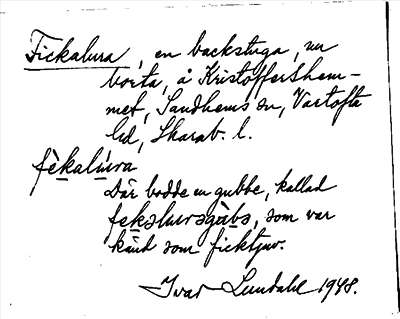 Fickalura, en backstuga, nu
borta, å Kristoffershem-
met, Sandhems sn, Vartofta
hd, Skarab. l.
fèkalúra
Där bodde en gubbe, kallad
fekalursgubs, som var
känd som ficktjuv.
Ivar Lundahl 1948.